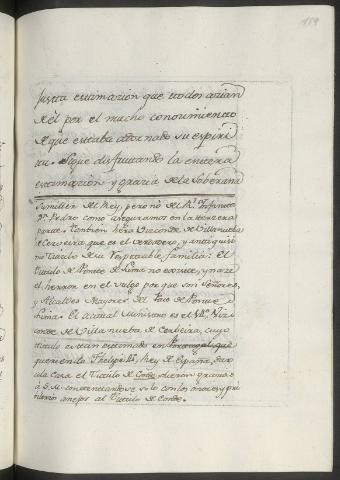 159
justa estimacion que todos acian
de el por el mucho conocimiento
de que estaba adornado su espiri
tu. Sigue disfrutando la entera
estimacion y gracia de la Soberana
Sumiller del Rey, pero no del Rl. Infante
Dn. Pedro como aseguramos en la tercera
parte. Tambien Vizconde de Villanueba
de Cerveira, que es el verdadero, y antiquisi
mo titulo de su respetable familia. El
titulo de Ponte de Lima no existe, y nace
el herror en el vulgo por que son Señores,
y Alcaldes Mayores del Pais de Ponte de
Lima. El actual Ministro es el Viz
conde de Villanueba de Cerbeira, cuyo
titulo es tan estimado en Portugal, que
queriendo Phelipe II, Rey de España, dar
a la Casa el titulo de Conde, dieron gracias
á S. M. contentandose solo con los onores, y pri
bilegios anejos al titulo de Conde.